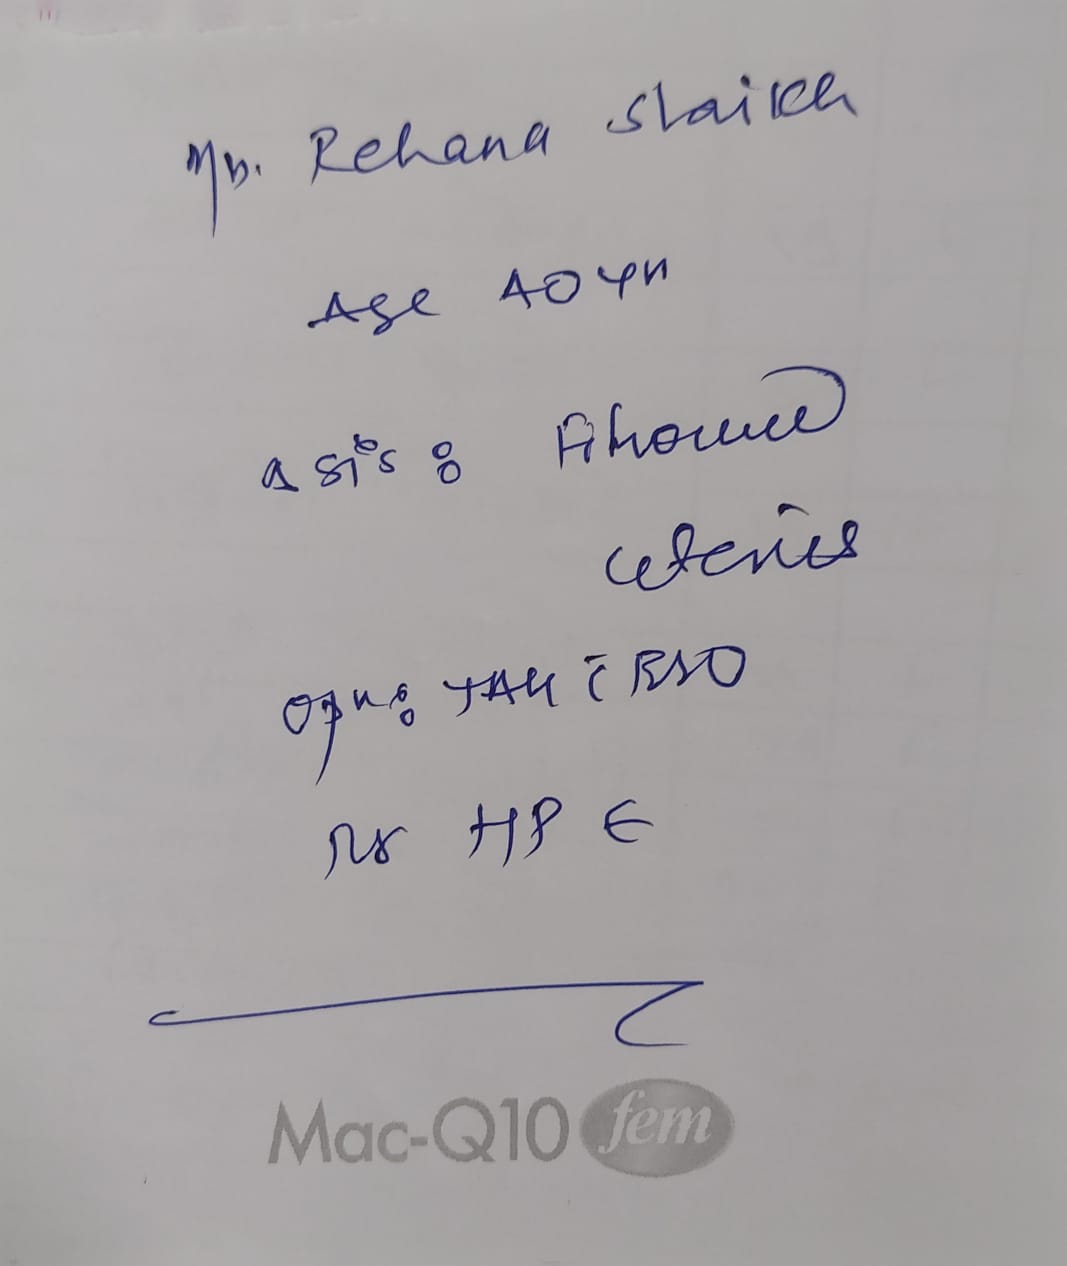 Mrs. Rehana Shaikh
Age 40 yrs
Δsis : Fibroid
uterus
Opn : TAH c̄ BSO
Adv HPE
Mac-Q10 fem